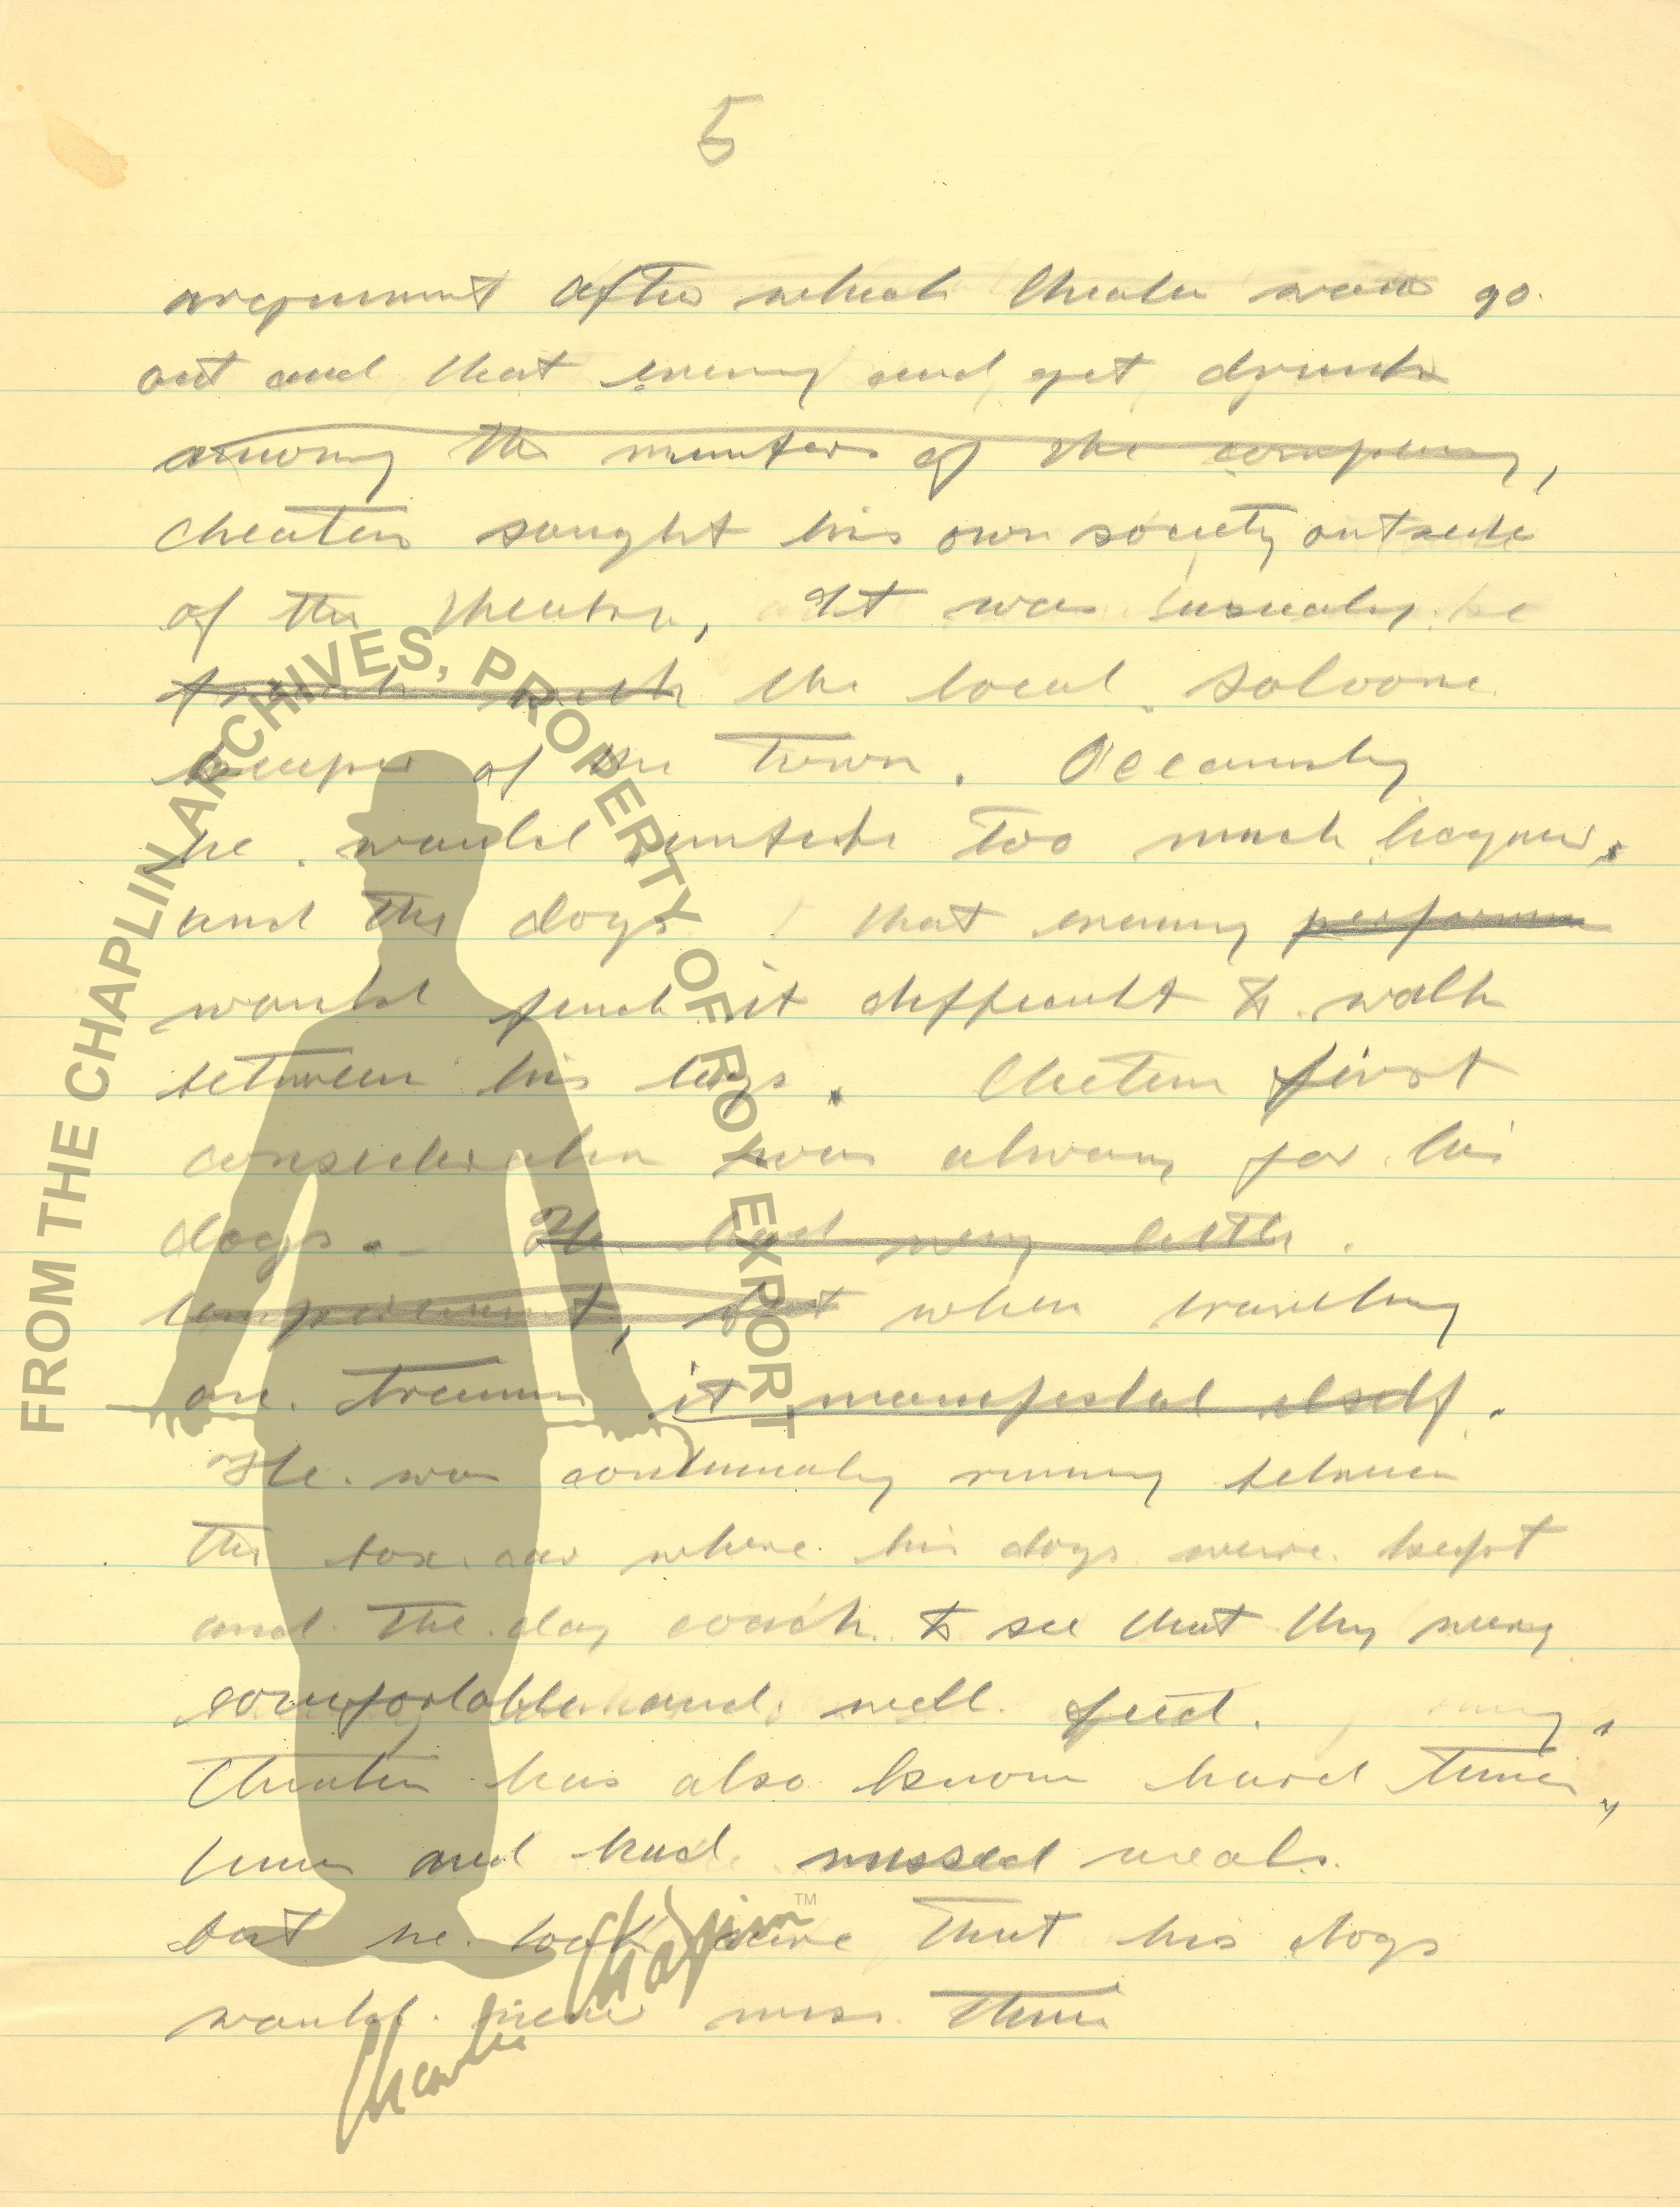 5
argument after which Cheater would go
out and that evening and get drunk
among the members of the company,
Cheater sought his own society outside
of the theatre, It was usualy be
the local saloone
keeper of the town. Occanisly
he would imbibe too much liquer,
and the dogs that evening performe
would find it difficult to walk
between his legs. Cheter first
consideration was always for his
dogs. He had very little
temperament, but when traveling
on trains it manifested itself.
He was continualy running between
the box car where his dogs were kept
and the day coach to see that they were
comfortable and well feed.
Cheater has also known hard times
and had missed meals.
but he took care that his dogs
would never miss theirs
FROM THE CHAPLIN ARCHIVES, PROPERTY OF ROY EXPORT
Charlie Chaplin™